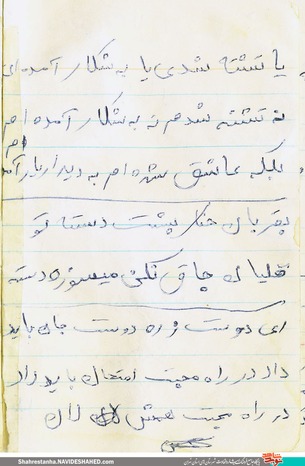 یا تشنه شدی یا به شکار آمده ای
نه تشنه شدم نه به شکار آمده ام
بلکه عاشق شده ام به دیدار یار آمده ام
قربان حنا پشت دسته تو
قلیان چاق نکن میسوزه دسته
ای دوست ز ره دوست جان باید
داد در راه محبت امتحان باید داد
در راه محبت
Shahrestanha.NAVIDESHAHED.com